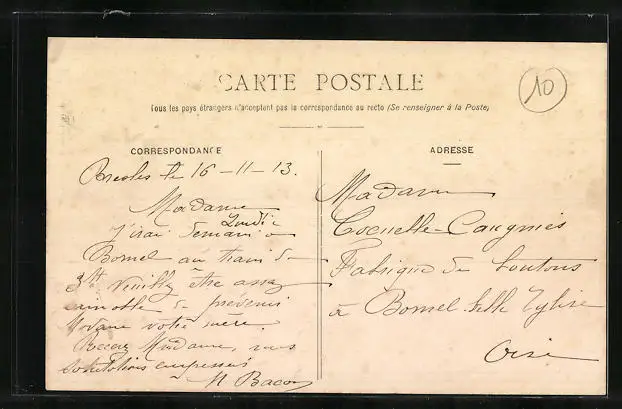 CARTE POSTALE
Tous les pays étrangers n'acceptent pas la correspondance au recto (Se renseigner à la Poste)
10
CORRESPONDANCE
Bresles le 16-11-13.
Madame
J'irai demain Lundi à
Bornel au train de
3h Veuillez être assez
aimable de prévenir
Madame votre mère.
Recevez Madame, mes
Salutations empressées
Bacon
ADRESSE
Madame
Cocuelle-Caugnies
Fabrique de boutons
à Bornel Belle Eglise
Oise